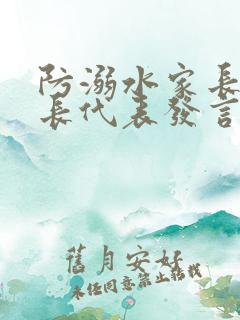 防溺水家長
長代表發言
舊月安好
未经同意禁止搭载